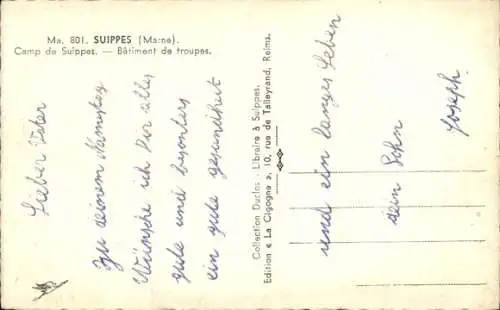 Ma. 801. SUIPPES (Marne).
Camp de Suippes. — Bâtiment de troupes.
Lieber Vater
Zu deinem Namestag
Wünsche ich Dir alles
gute und besonders
ein gute gesundheit
Collection Duclos - Libraire à Suippes.
Edition « La Cigogne », 10, rue de Talleyrand, Reims.
und ein langes Leben
dein Sohn
Joseph